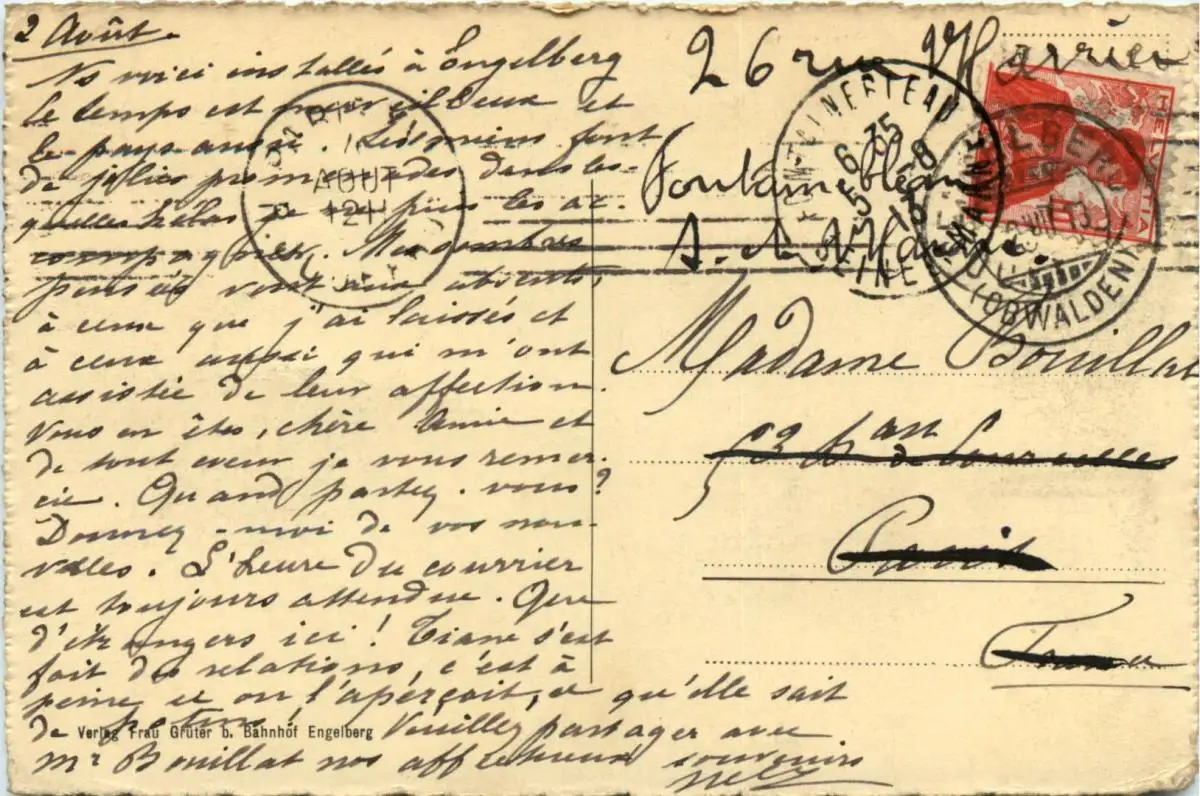 2 Août.
Ns voici installés à Engelberg
le temps est merveilleux et
le pays aussi. Les miens font
de jolies promenades dans les-
quelles hélas je ne puis les ac-
compagner. Mes sombres
pensées vont aux absents,
à ceux que j'ai laissés et
à ceux aussi qui m'ont
assistée de leur affection.
Vous en êtes, chère Amie et
de tout cœur je vous remer-
cie. Quand partez-vous?
Donnez-moi de vos nou-
velles. L'heure du courrier
est toujours attendue. Que
d'étrangers ici! Liane s'est
fait des relations, c'est à
peine si on l'aperçoit, ce qu'elle sait
de potins! Veuillez partager avec
Mr Bouillat nos affectueux souvenirs
Nelly
Verlag Frau Grüter b. Bahnhof Engelberg
26 rue
Fontainebleau
S. et Marne.
Madame Bouillat
53 bd de Courcelles
Paris
France
PARIS
AOUT
12H
FONTAINEBLEAU
6 35
5-8
13
SEINE ET MARNE
HELVETIA
10
ENGELBERG
VIII 13
(OBWALDEN)